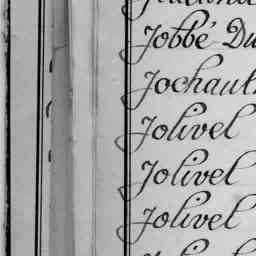 Jobbé Du
Jochaut
Jolivel
Jolivel
Jolivel